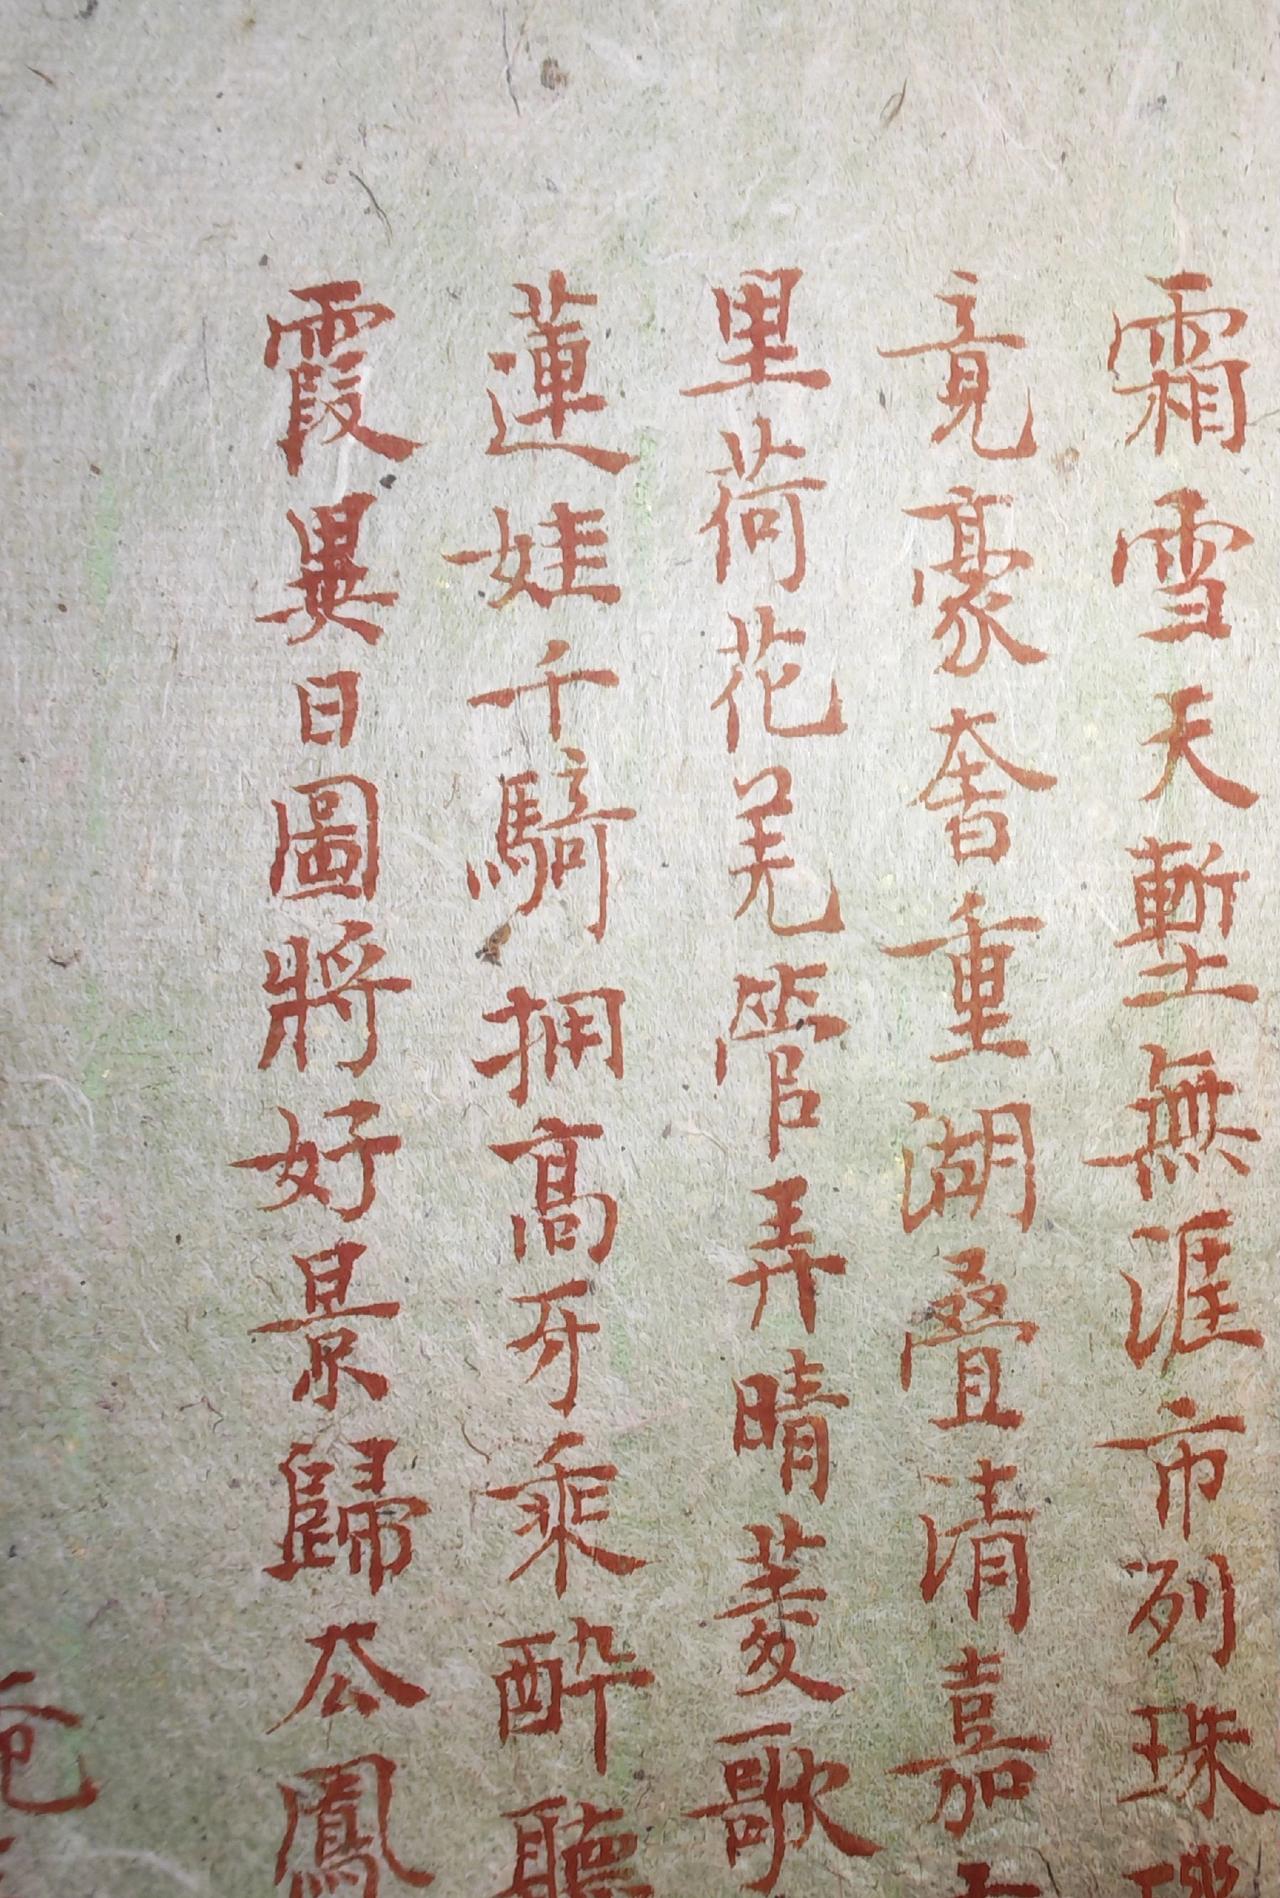 霜雪天塹無涯市列珠璣
竟豪奢重湖叠清嘉
里荷花羌管弄晴菱歌
蓮娃千騎擁高牙乘酔聽
霞異日圖將好景歸公鳳